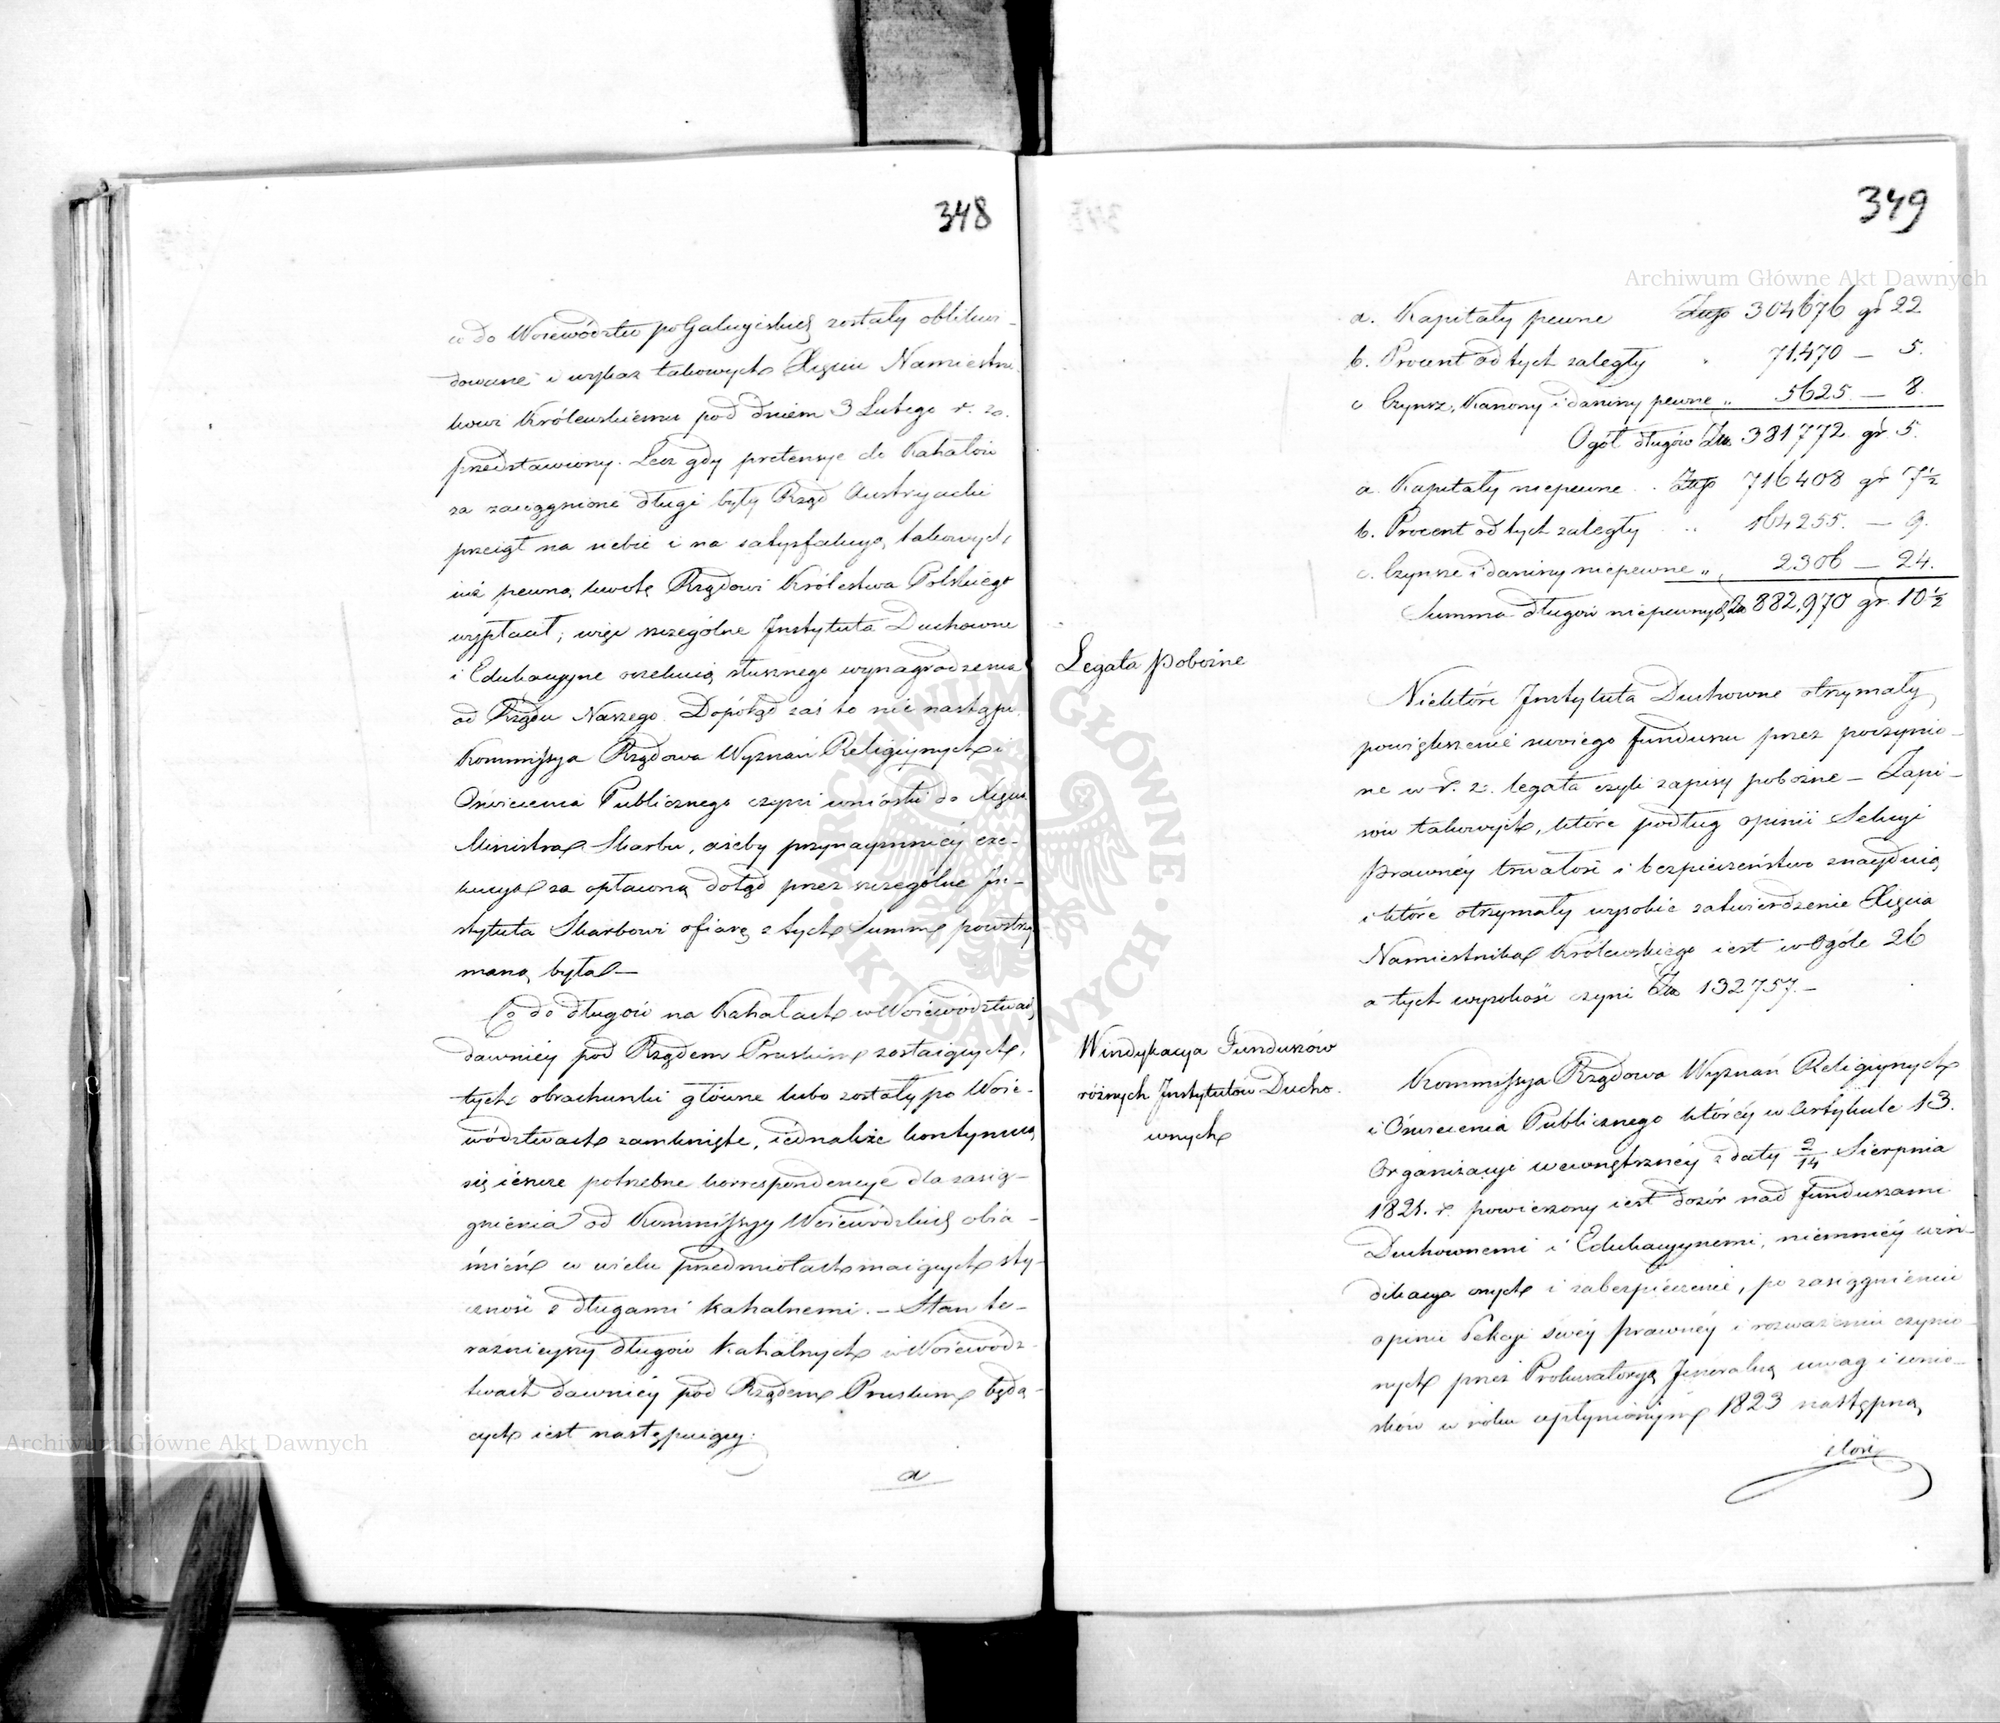 348
co do Woiewództw poGalicyiskich zostały oblikwi-
dowane i wykaz takowych Xięciu Namiestni-
kowi Królewskiemu pod dniem 3 Lutego r. z.
przedstawiony. Lecz gdy pretensye do Kahałów
za zaciągnione długi były Rząd Austryacki
przeiął na siebie i na satysfakcyą takowych
iuż pewną kwotę Rządowi Królestwa Polskiego
wypłacił; więc szczególne Instytuta Duchowne
i Edukacyine oczekuią słusznego wynagrodzenia
od Rządu Naszego. Dopókąd zaś to nie nastąpi
Kommissya Rządowa Wyznań Religiynych i
Oświecenia Publicznego czyni wnioski do Xięcia
Ministra Skarbu, ażeby przynaymniéy exe-
kucya za opłacaną dotąd przez szczególne In-
stytuta Skarbowi ofiarę z tych Summ powstrzy
maną była —
Co do długów na Kahałach w Woiewództwach
dawniéy pod Rządem Pruskim zostaiących,
tych obrachunki główne lubo zostały po Woie-
wództwach zamknięte, iednakże kontynuuią
się ieszcze potrzebne korrespondencye dla zasią-
gnienia od Kommissyy Woiewódzkich obia-
śnień w wielu przedmiotach maiących sty-
czność z długami kahalnemi. — Stan te-
raźnieyszy długów kahalnych w Woiewódz-
twach dawniéy pod Rządem Pruskim będą-
cych iest następuiący:
a
349
a. Kapitały pewne Złp 304676 gr 22
b. Procent od tych zaległy " 71,470 — 5.
c Czynsz, Kanony i daniny pewne " 5625. — 8.
Ogół długów Złp 381772. gr. 5.
a. Kapitały niepewne . . Złp 716408 gr 7½
b. Procent od tych zaległy " 164255. — 9.
c. Czynsze i daniny niepewne " 2306 — 24.
Summa długów niepewnych Złp 882,970 gr. 10½
Legata pobożne
Niektóre Instytuta Duchowne otrzymały
powiększenie swoiego funduszu przez poczynio-
ne w r. z. legata czyli zapisy pobożne — Zapi-
sów takowych, które podług opinii Sekcyi
Prawnéy trwałość i bezpieczeństwo znayduią
i które otrzymały wysokie zatwierdzenie Xięcia
Namiestnika Królewskiego iest w Ogóle 26
a tych wysokość czyni Złp 132757. —
Windykacya Funduszów
różnych Instytutów Ducho.
wnych
Kommissya Rządowa Wyznań Religiynych
i Oświecenia Publicznego któréy w Artykule 13.
Organizacyi wewnętrznéy z daty 2/14 Sierpnia
1821. r. powierzony iest dozór nad funduszami
Duchownemi i Edukacyynemi, niemniéy win-
dikacya onych i zabezpieczenie, po zasiągnieniu
opinii Sekcyi swéy prawnéy i rozważeniu czynio-
nych przez Prokuratoryą Jeneralną uwag i wnio-
sków w roku upłynionym 1823 następną
ilość
Archiwum Główne Akt Dawnych
Archiwum Główne Akt Dawnych
ARCHIWUM GŁÓWNE · AKT DAWNYCH ·